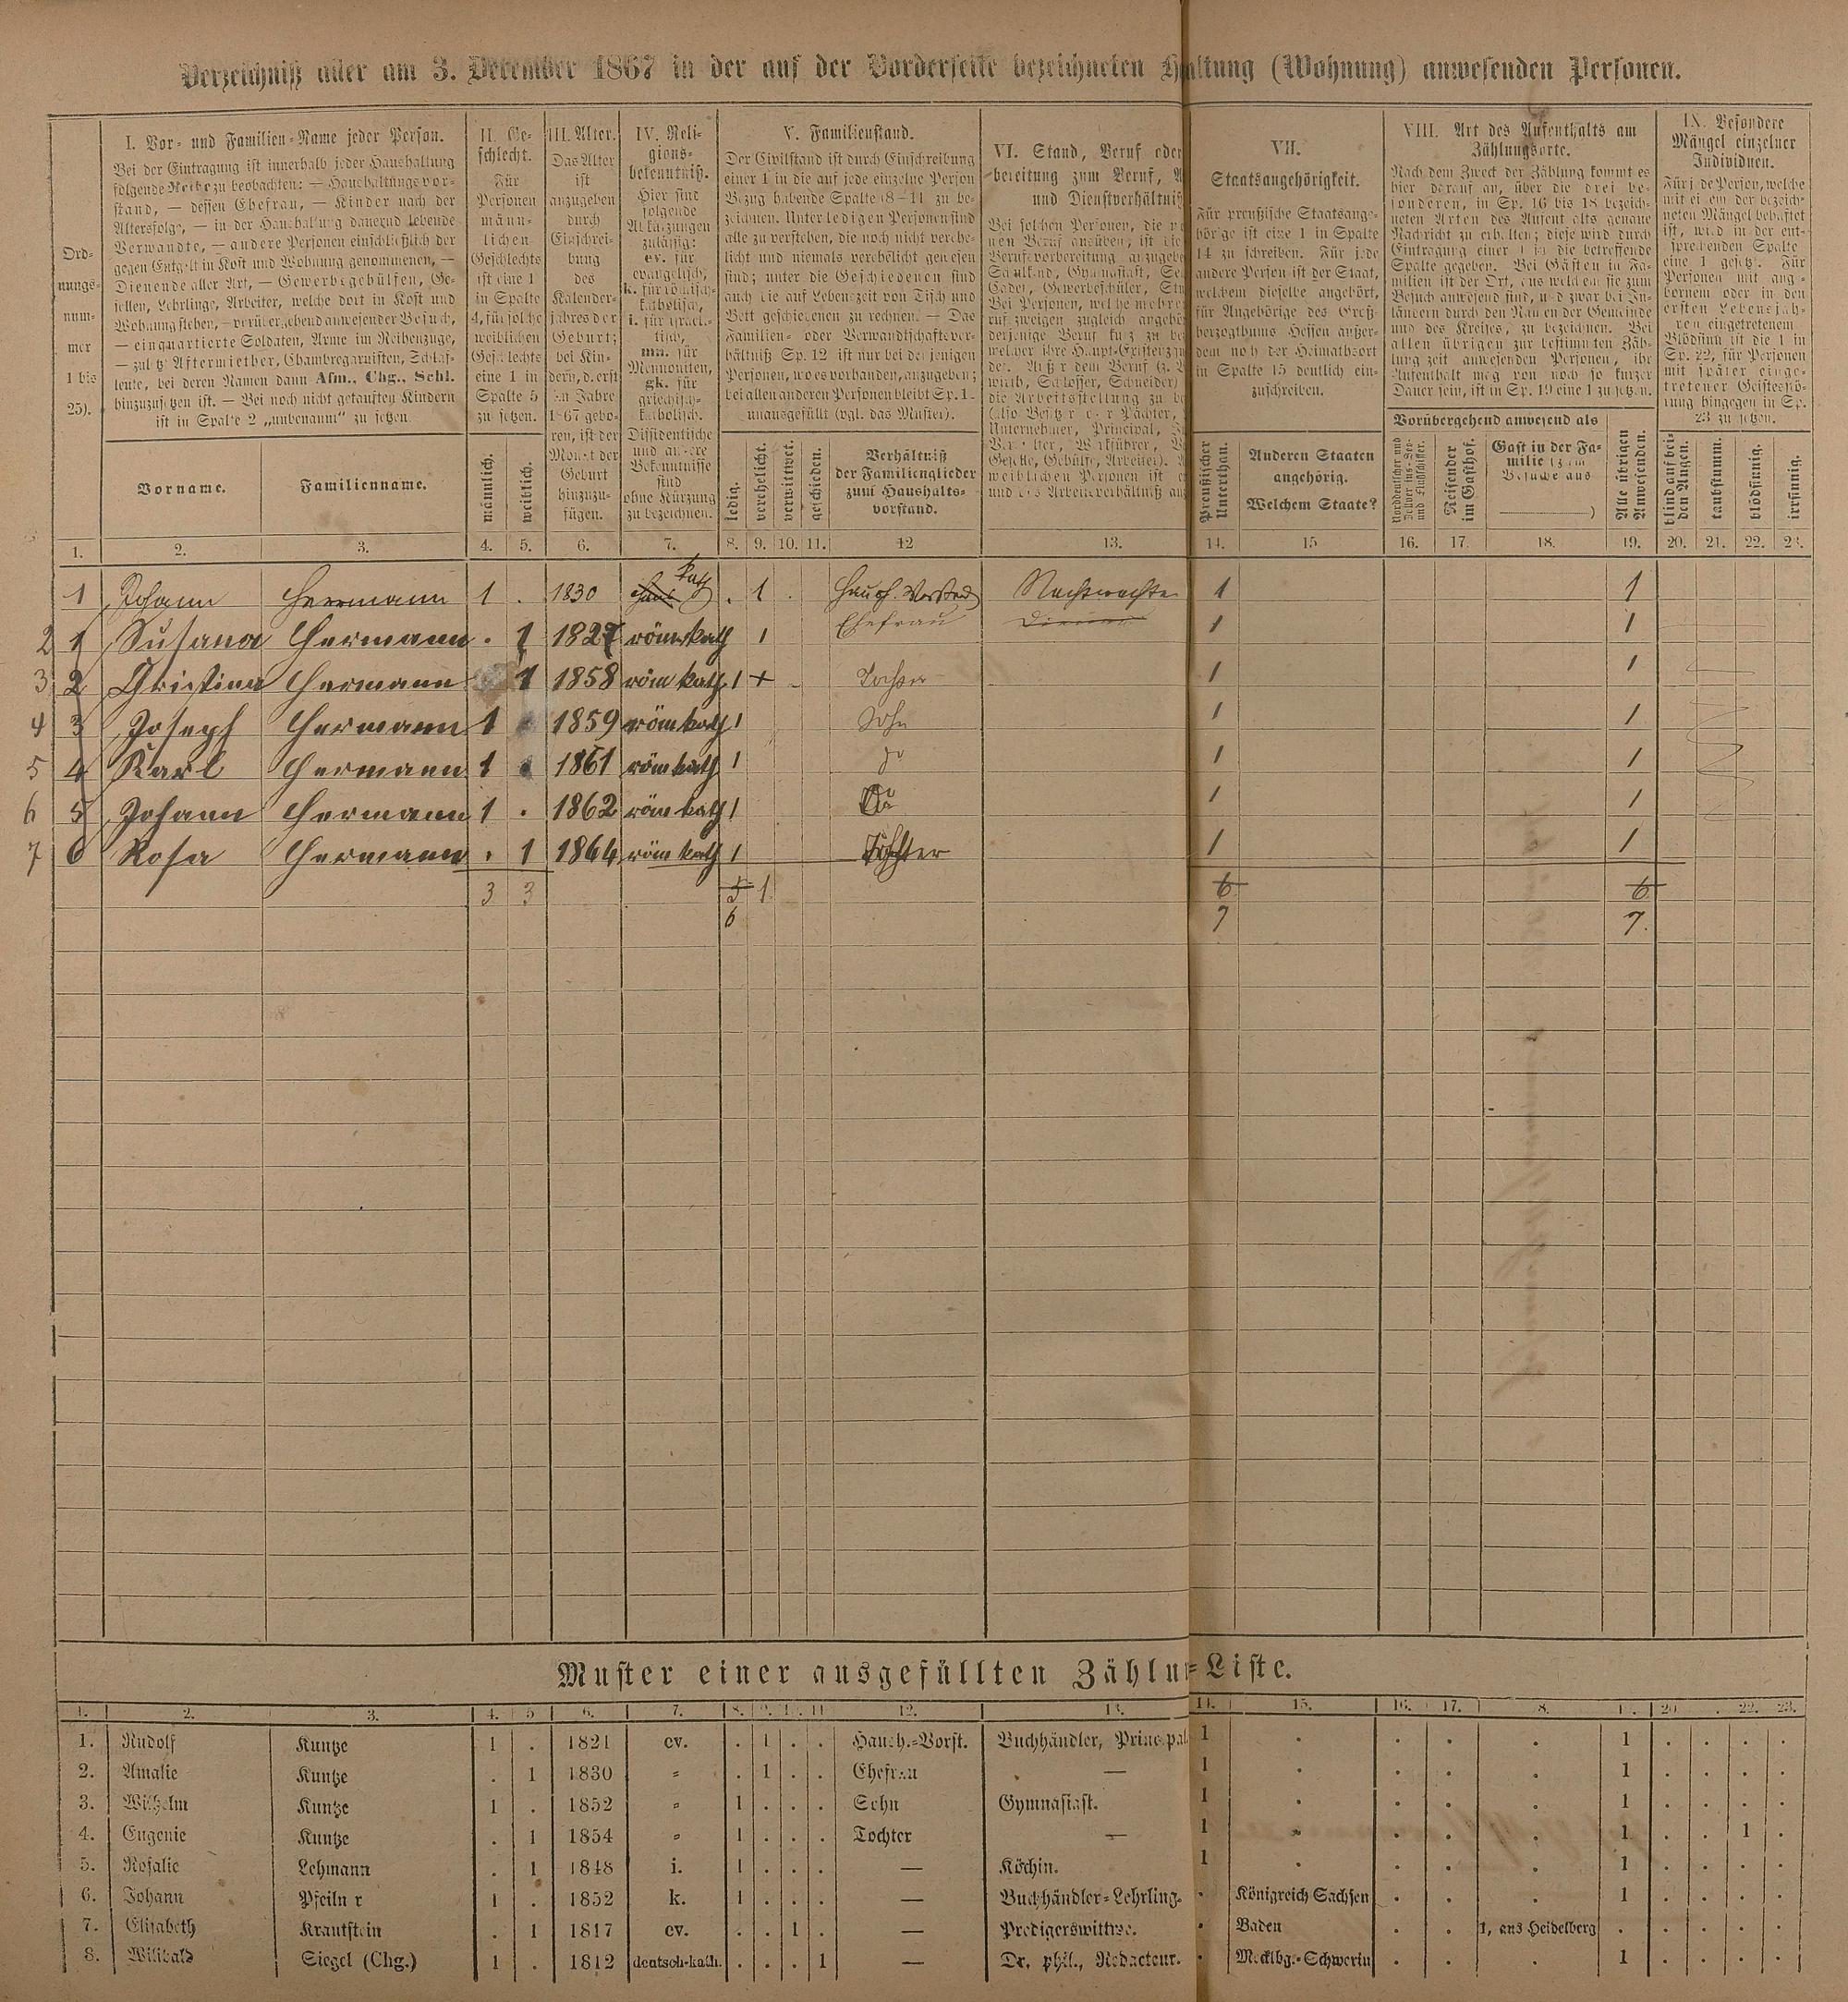 Verzeichniß aller am 3. December 1867 in der auf der Vorderseite bezeichneten Haltung (Wohnung) anwesenden Personen.
Ord-
nungs-
num-
mer
1 bis
25).
I. Vor- und Familien-Name jeder Person.
Bei der Eintragung ist innerhalb jeder Haushaltung
folgende Reihe zu beobachten: — Haushaltungsvor-
stand, — dessen Ehefrau, — Kinder nach der
Altersfolge, — in der Haushaltung dauernd lebende
Verwandte, — andere Personen einschließlich der
gegen Entgelt in Kost und Wohnung genommenen, —
Dienende aller Art, — Gewerbegehülfen, Ge-
sellen, Lehrlinge, Arbeiter, welche dort in Kost und
Wohnung stehen, — vorübergehend anwesender Besuch,
— einquartierte Soldaten, Arme im Reihenzuge,
— zuletzt Aftermiether, Chambregarnisten, Schlaf-
leute, bei deren Namen dann Afm., Chg., Schl.
hinzuzusetzen ist. — Bei noch nicht getauften Kindern
ist in Spalte 2 „unbenannt" zu setzen.
Vorname.
Familienname.
II. Ge-
schlecht.
Für
Personen
männ-
lichen
Geschlechts
ist eine 1
in Spalte
4, für solche
weiblichen
Geschlechts
eine 1 in
Spalte 5
zu setzen.
männlich.
weiblich.
III. Alter.
Das Alter
ist
anzugeben
durch
Einschrei-
bung
des
Kalender-
jahres der
Geburt;
bei Kin-
dern, d. erst
im Jahre
1867 gebo-
ren, ist der
Monat der
Geburt
hinzuzu-
fügen.
IV. Reli-
gions-
bekenntniß.
Hier sind
folgende
Abkürzungen
zulässig:
ev. für
evangelisch,
k. für römisch-
katholisch,
i. für israeli-
tisch,
mn. für
Mennoniten,
gk. für
griechisch-
katholisch.
Dissidentische
und andere
Bekenntnisse
sind
ohne Kürzung
zu bezeichnen.
V. Familienstand.
Der Civilstand ist durch Einschreibung
einer 1 in die auf jede einzelne Person
Bezug habende Spalte (8–11) zu be-
zeichnen. Unter ledigen Personen sind
alle zu verstehen, die noch nicht verehe-
licht und niemals verehelicht gewesen
sind; unter die Geschiedenen sind
auch die auf Lebenszeit von Tisch und
Bett geschiedenen zu rechnen. — Das
Familien- oder Verwandtschaftsver-
hältniß Sp. 12 ist nur bei denjenigen
Personen, wo es vorhanden, anzugeben;
bei allen anderen Personen bleibt Sp. 1-
unausgefüllt (vgl. das Muster).
ledig.
verehelicht.
verwittwet.
geschieden.
Verhältniß
der Familienglieder
zum Haushalts-
vorstand.
VI. Stand, Beruf oder
bereitung zum Beruf,
und Dienstverhältniß
VII.
Staatsangehörigkeit.
Für preußische Staatsange-
hörige ist eine 1 in Spalte
14 zu schreiben. Für jede
andere Person ist der Staat,
welchem dieselbe angehört,
für Angehörige des Groß-
herzogthums Hessen außer-
dem noch der Heimathsort
in Spalte 15 deutlich ein-
zuschreiben.
Preußischer
Unterthan.
Anderen Staaten
angehörig.
Welchem Staate?
VIII. Art des Aufenthalts am
Zählungsorte.
Nach dem Zweck der Zählung kommt es
hier darauf an, über die drei be-
sonderen, in Sp. 16 bis 18 bezeich-
neten Arten des Aufenthalts genaue
Nachricht zu erhalten; diese wird durch
Eintragung einer 1 in die betreffende
Spalte gegeben. Bei Gästen in Fa-
milien ist der Ort, aus welchem sie zum
Besuch anwesend sind, und zwar bei In-
ländern durch den Namen der Gemeinde
und des Kreises, zu bezeichnen. Bei
allen übrigen zur bestimmten Zäh-
lungszeit anwesenden Personen, ihr
Aufenthalt mag von noch so kurzer
Dauer sein, ist in Sp. 19 eine 1 zu setzen.
Vorübergehend anwesend als
Reisender
im Gasthof.
Gast in der Fa-
milie (zum
Besuche aus
)
Alle übrigen
Anwesenden.
IX. Besondere
Mängel einzelner
Individuen.
Für jede Person, welche
mit einem der bezeich-
neten Mängel behaftet
ist, wird in der ent-
sprechenden Spalte
eine 1 gesetzt. Für
Personen mit ange-
bornem oder in den
ersten Lebensjah-
ren eingetretenem
Blödsinn ist die 1 in
Sp. 22, für Personen
mit später einge-
tretener Geistesstö-
rung hingegen in Sp.
23 zu setzen.
blind auf bei-
den Augen.
taubstumm.
blödsinnig.
irrsinnig.
1. 2. 3. 4. 5. 6. 7. 8. 9. 10. 11. 12 13. 14. 15 16. 17. 18. 19. 20. 21. 22. 23.
kath
1 Johann Herrmann 1 . 1830 . 1 . Haush. Vorstand Nachtwächter 1 1
2 1 Susana Hermann . 1 1827 röm kath 1 Ehefrau 1 1
3 2 Christina Hermann 1 1858 röm kath 1 Tochter 1 1
4 3 Joseph Hermann 1 1859 röm kath 1 Sohn 1 1
5 4 Karl Hermann 1 1861 röm kath 1 do 1 1
6 5 Johann Hermann 1 . 1862 röm kath 1 1 1
7 6 Rosa Hermann . 1 1864 röm kath 1 Tochter 1 1
3 3 5 1 6 6
6 7 7.
Muster einer ausgefüllten Zählu-Liste.
1. 2. 3. 4. 5 6. 7. 8. 9. 11 12. 13. 14. 15. 16. 17. 8. 20 22. 23.
1. Rudolf Kuntze 1 . 1821 ev. . 1 . . Haush.-Vorst. Buchhändler, Principal 1 . . . . 1 . . . .
2. Amalie Kuntze . 1 1830 " . 1 . . Ehefrau — 1 . . . . 1 . . . .
3. Wilhelm Kuntze 1 . 1852 " 1 . . . Sohn Gymnasiast. 1 . . . . 1 . . . .
4. Eugenie Kuntze . 1 1854 " 1 . . . Tochter — 1 . . . . 1 . . 1 .
5. Rosalie Lehmann . 1 1848 i. 1 . . . — Köchin. 1 . . . . 1 . . . .
6. Johann Pfeilner 1 . 1852 k. 1 . . . — Buchhändler-Lehrling. . Königreich Sachsen . . . 1 . . . .
7. Elisabeth Krautstein . 1 1817 ev. . . 1 . — Predigerswittwe. . Baden . . 1, aus Heidelberg . . . . .
8. Wilibald Siegel (Chg.) 1 . 1812 deutsch-kath. . . . 1 — Dr. phil., Redacteur. . Mecklbg.-Schwerin . . . 1 . . . .